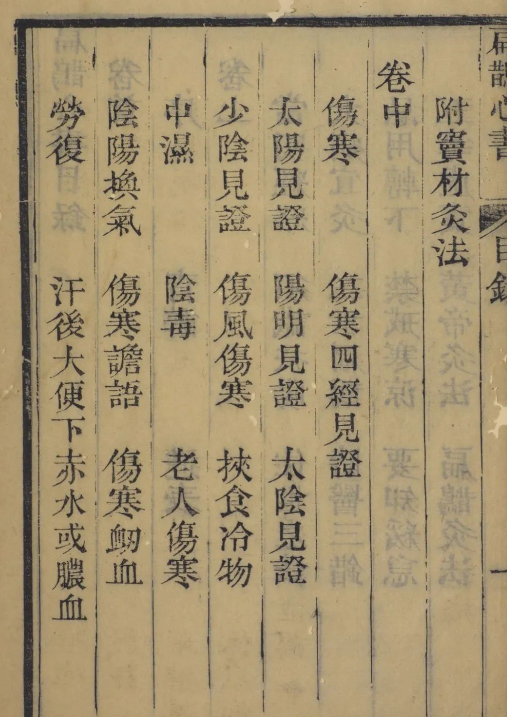 扁鵲心書 目錄 一
附竇材灸法
卷中
傷寒 傷寒四經見證
太陽見證 陽明見證 太陰見證
少陰見證 傷風傷寒 挾食冷物
中濕 陰毒 老人傷寒
陰陽換氣 傷寒譫語 傷寒衂血
勞復 汗後大便下赤水或膿血